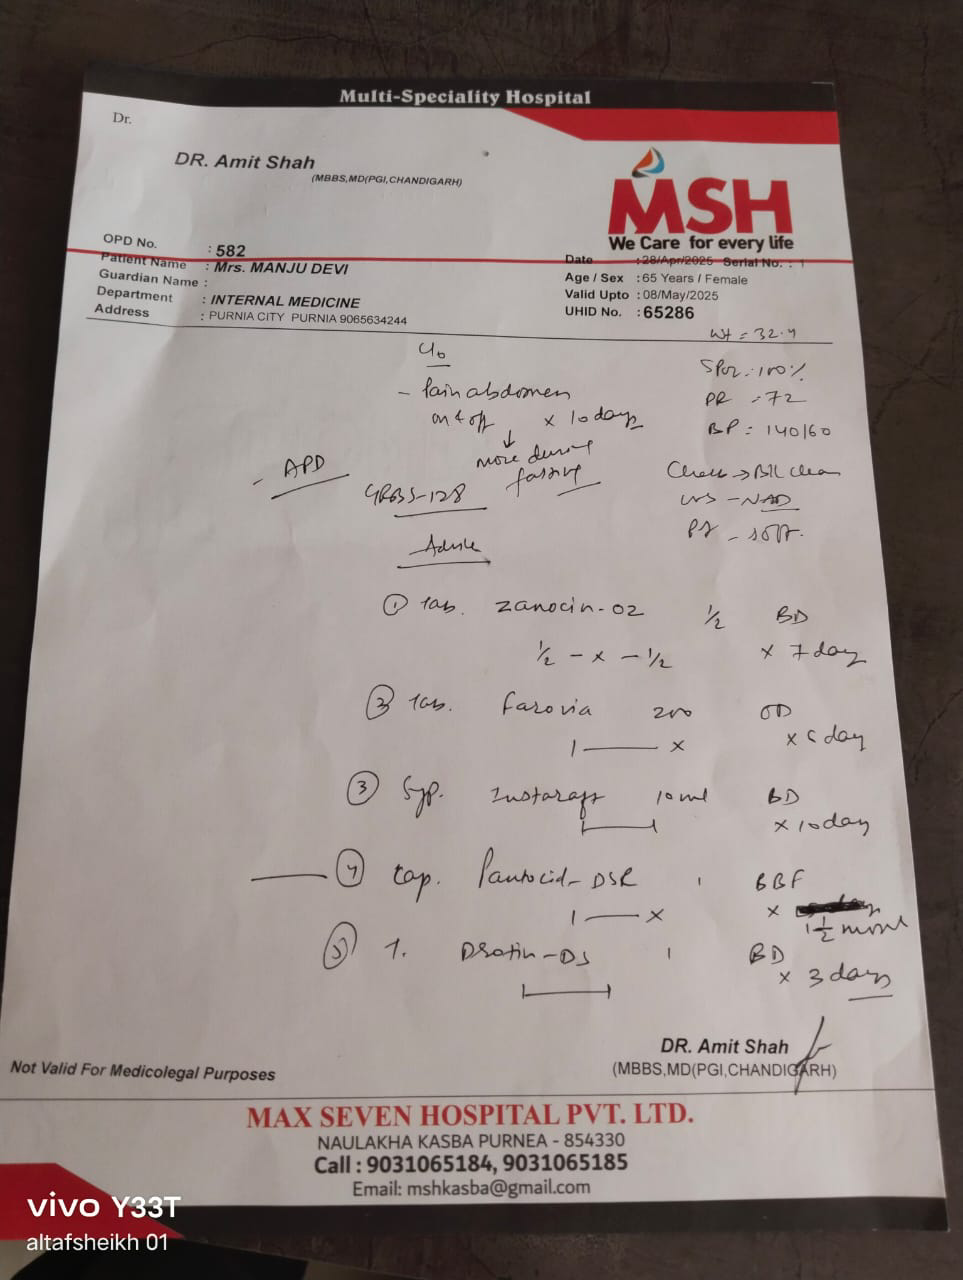 Multi-Speciality Hospital
Dr.
DR. Amit Shah
(MBBS,MD(PGI,CHANDIGARH)
MSH
We Care for every life
OPD No. : 582
Patient Name : Mrs. MANJU DEVI
Guardian Name :
Department : INTERNAL MEDICINE
Address : PURNIA CITY PURNIA 9065634244
Date : 28/Apr/2025 Serial No. : 1
Age / Sex : 65 Years / Female
Valid Upto : 08/May/2025
UHID No. : 65286
Wt = 32.4
C/o
SPO2 - 100%
- Pain abdomen
PR - 72
on & off x 10 days
BP = 140/60
↓
more during
fasting
- APD
Chest → B/L clear
GRBS-128
- NAD
P/A - soft.
Advise
① Tab. Zanocin-OZ 1/2 BD
1/2 - x - 1/2 x 7 day
② Tab. Farovia 200 OD
1 — x x 5 day
③ Syp. Instaraft 10 ml BD
x 10 day
④ Cap. Pantocid-DSR 1 BBF
1 — x x 1 1/2 month
⑤ T. Drotin-DS 1 BD
x 3 days
DR. Amit Shah
(MBBS,MD(PGI,CHANDIGARH)
Not Valid For Medicolegal Purposes
MAX SEVEN HOSPITAL PVT. LTD.
NAULAKHA KASBA PURNEA - 854330
Call : 9031065184, 9031065185
Email: mshkasba@gmail.com
vivo Y33T
altafsheikh 01